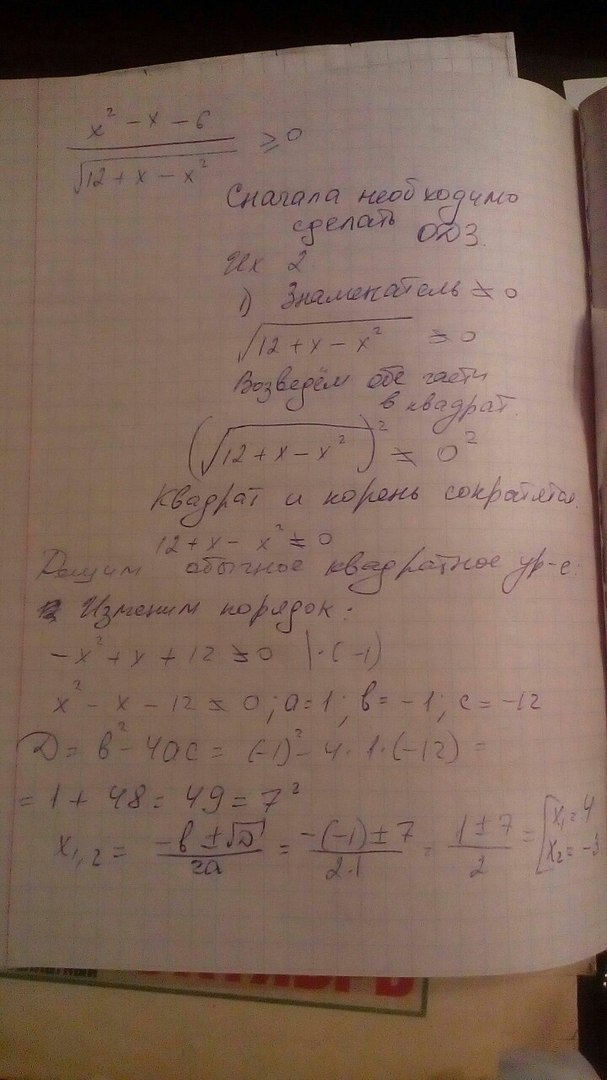 x² - x - 6
√12 + x - x² ⩾ 0
Сначала необходимо
сделать ОДЗ.
Их 2
1) Знаменатель ≠ 0
√12 + x - x² ≠ 0
Возведём обе части
в квадрат.
(√12 + x - x²)² ≠ 0²
Квадрат и корень сократятся.
12 + x - x² ≠ 0
Решим обычное квадратное ур-е:
Изменим порядок:
-x² + x + 12 ≠ 0 | · (-1)
x² - x - 12 ≠ 0; a = 1; b = -1; c = -12
D = b² - 4ac = (-1)² - 4 · 1 · (-12) =
= 1 + 48 = 49 = 7²
x₁,₂ = -b ± √D / 2a = -(-1) ± 7 / 2·1 = 1 ± 7 / 2 = [x₁ = 4
x₂ = -3